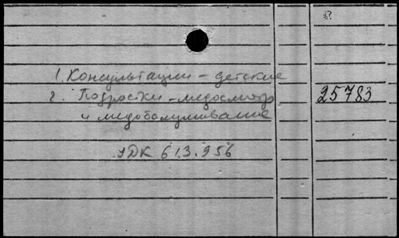 1. Консультации – детские
2. Подростки – медосмотр
25783
и медобслуживание
УДК 613.956